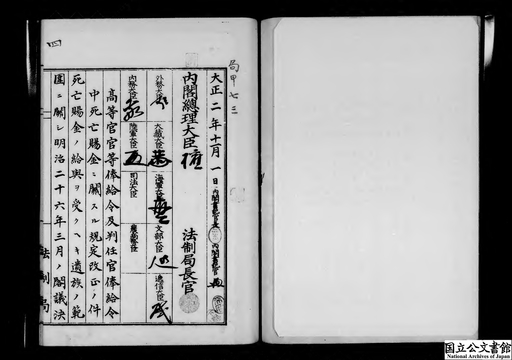 局甲七三
大正二年十一月一日
内閣書記官長
内閣書記官
内閣總理大臣
法制局長官
外務大臣
大藏大臣
海軍大臣
文部大臣
遞信大臣
内務大臣
陸軍大臣
司法大臣
農商務大臣
高等官官等俸給令及判任官俸給令
中死亡賜金ニ關スル規定改正ノ件
死亡賜金ノ給與ヲ受クヘキ遺族ノ範
圍ニ關シ明治二十六年三月ノ閣議決
法制局
国立公文書館
National Archives of Japan